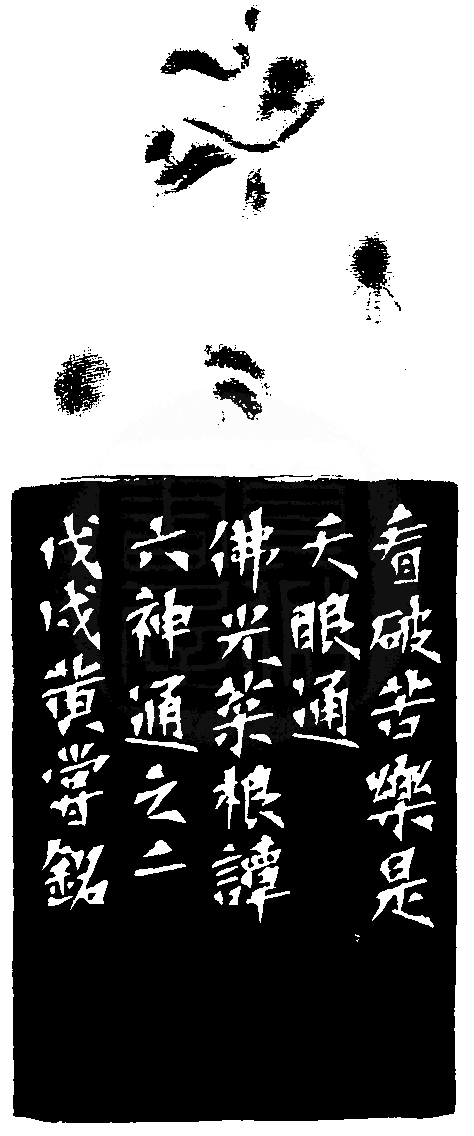 看破苦樂是
天眼通
佛光菜根譚
六神通之二
戊戌黃嘗銘